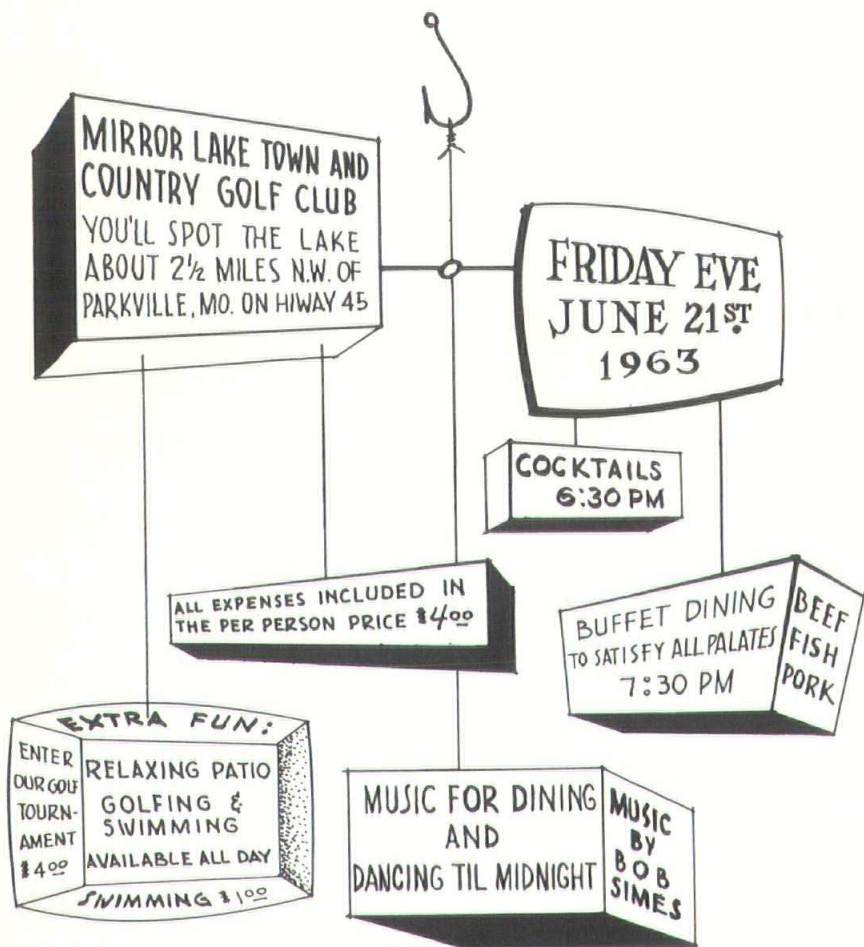 MIRROR LAKE TOWN AND
COUNTRY GOLF CLUB
YOU'LL SPOT THE LAKE
ABOUT 2½ MILES N.W. OF
PARKVILLE, MO. ON HIWAY 45
FRIDAY EVE
JUNE 21ST.
1963
COCKTAILS
6:30 PM
ALL EXPENSES INCLUDED IN
THE PER PERSON PRICE $4.00
BUFFET DINING
TO SATISFY ALL PALATES
7:30 PM
BEEF
FISH
PORK
EXTRA FUN:
ENTER
OUR GOLF
TOURN-
AMENT
$4.00
RELAXING PATIO
GOLFING &
SWIMMING
AVAILABLE ALL DAY
SWIMMING $1.00
MUSIC FOR DINING
AND
DANCING TIL MIDNIGHT
MUSIC
BY
BOB
SIMES